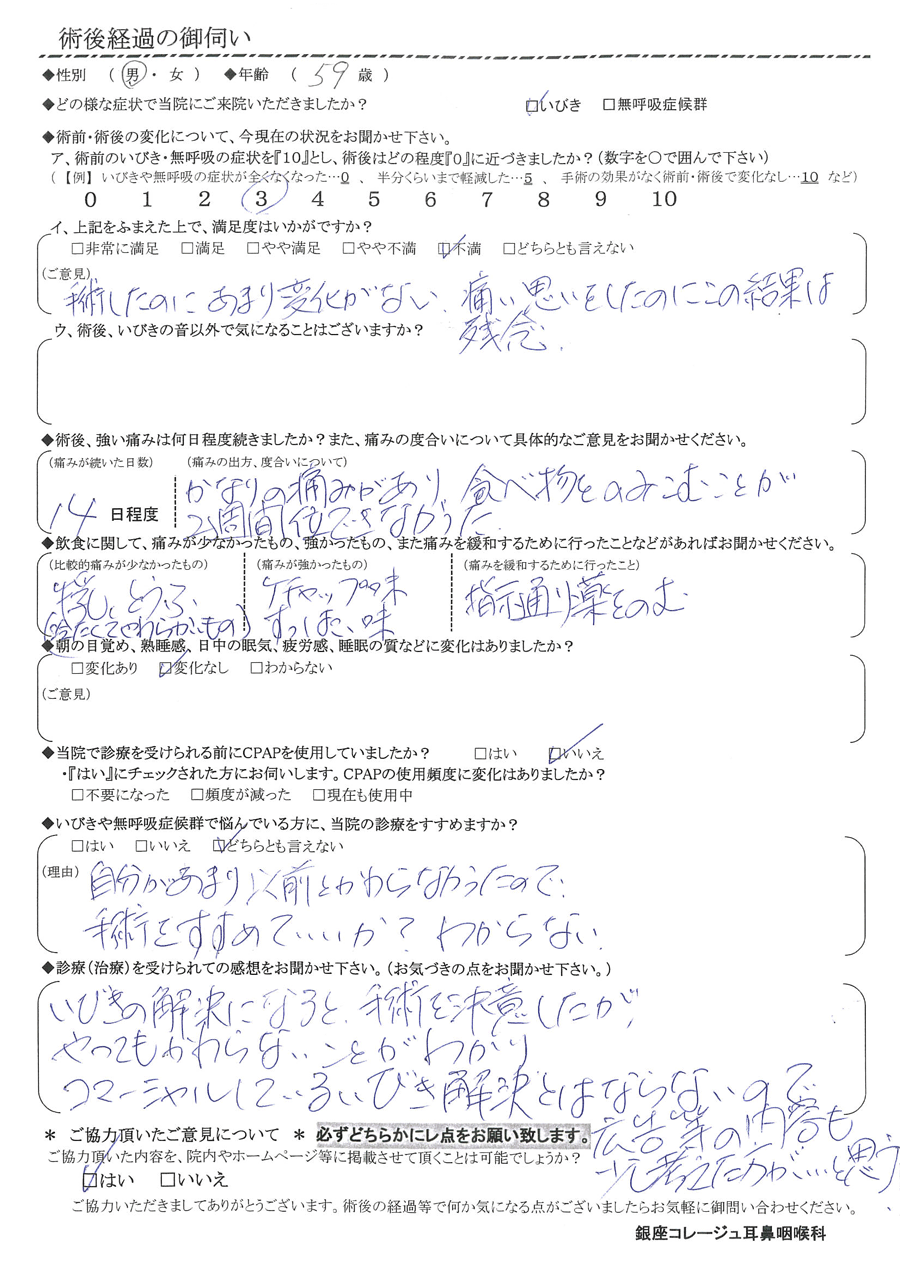 術後経過の御伺い
◆性別 ( 男 ・ 女 ) ◆年齢 ( 59 歳 )
◆どの様な症状で当院にご来院いただきましたか? ☑いびき □無呼吸症候群
◆術前・術後の変化について、今現在の状況をお聞かせ下さい。
ア、術前のいびき・無呼吸の症状を『10』とし、術後はどの程度『0』に近づきましたか?(数字を〇で囲んで下さい)
(【例】いびきや無呼吸の症状が全くなくなった…0 、 半分くらいまで軽減した…5 、 手術の効果がなく術前・術後で変化なし…10 など)
0 1 2 3 4 5 6 7 8 9 10
イ、上記をふまえた上で、満足度はいかがですか?
□非常に満足 □満足 □やや満足 □やや不満 ☑不満 □どちらとも言えない
(ご意見)
手術したのにあまり変化がない、痛い思いをしたのにこの結果は
残念.
ウ、術後、いびきの音以外で気になることはございますか?
◆術後、強い痛みは何日程度続きましたか?また、痛みの度合いについて具体的なご意見をお聞かせください。
(痛みが続いた日数) (痛みの出方、度合いについて)
かなりの痛みがあり、食べ物をのみこむことが
14 日程度 2週間位できなかった
◆飲食に関して、痛みが少なかったもの、強かったもの、また痛みを緩和するために行ったことなどがあればお聞かせください。
(比較的痛みが少なかったもの) (痛みが強かったもの) (痛みを緩和するために行ったこと)
とうふ、 ケチャップ味 指示通り薬をのむ
(冷たくてやわらかいもの) すっぱい味
◆朝の目覚め、熟睡感、日中の眠気、疲労感、睡眠の質などに変化はありましたか?
□変化あり ☑変化なし □わからない
(ご意見)
◆当院で診療を受けられる前にCPAPを使用していましたか? □はい ☑いいえ
・『はい』にチェックされた方にお伺いします。CPAPの使用頻度に変化はありましたか?
□不要になった □頻度が減った □現在も使用中
◆いびきや無呼吸症候群で悩んでいる方に、当院の診療をすすめますか?
□はい □いいえ ☑どちらとも言えない
(理由)
自分があまり以前とかわらなかったので
手術をすすめていいか?わからない
◆診療(治療)を受けられての感想をお聞かせ下さい。(お気づきの点をお聞かせください。)
いびきの解決になると、手術を決意したが、
やってもかわらないことがわかり
コマーシャルしているいびき解決とはならないので
広告等の内容も
一元考えた方がいいと思う
* ご協力頂いたご意見について * 必ずどちらかにレ点をお願い致します。
ご協力頂いた内容を、院内やホームページ等に掲載させて頂くことは可能でしょうか?
☑はい □いいえ
ご協力いただきましてありがとうございます。術後の経過等で何か気になる点がございましたらお気軽に御問い合わせください。
銀座コレージュ耳鼻咽喉科